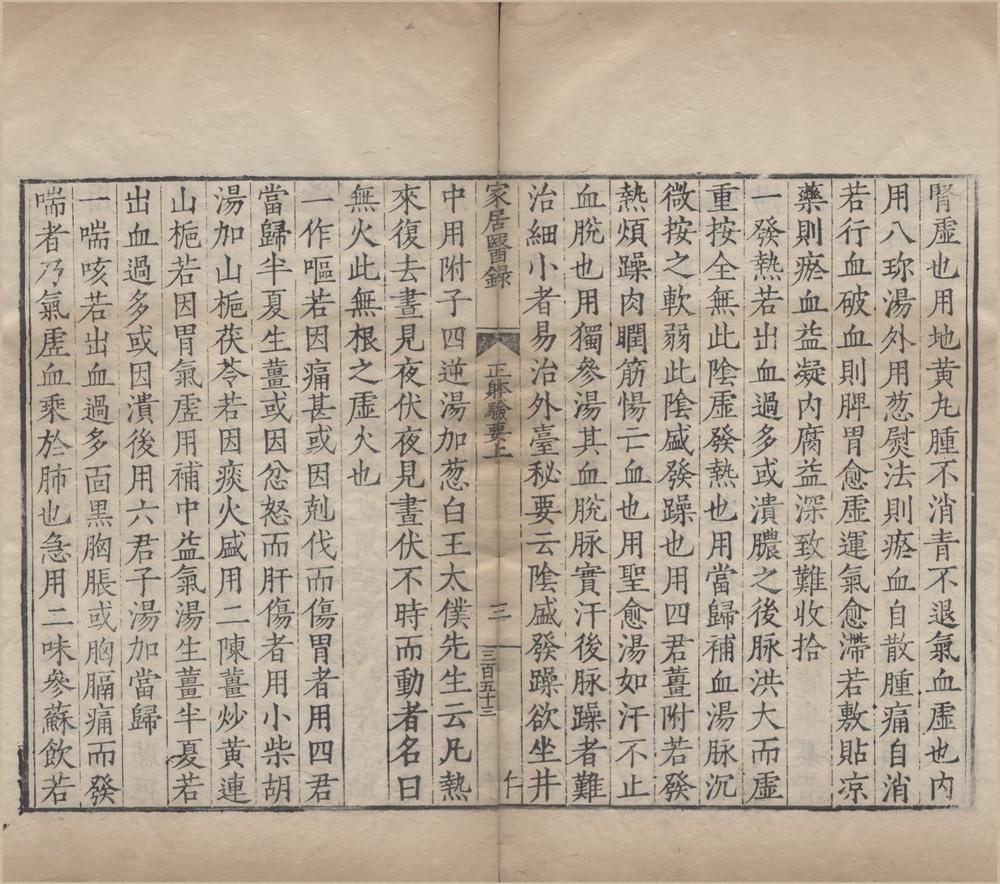 腎虛也用地黄丸腫不消青不退氣血虛也内
用八珎湯外用葱熨法則瘀血自散腫痛自消
若行血破血則脾胃愈虛運氣愈滯若敷貼凉
藥則瘀血益凝内腐益深致難收拾
一發熱若出血過多或潰膿之後脉洪大而虛
重按全無此陰虛發熱也用當歸補血湯脉沉
微按之軟弱此陰盛發躁也用四君薑附若發
熱煩躁肉瞤筋惕亡血也用聖愈湯如汗不止
血脫也用獨參湯其血脫脉實汗後脉躁者難
治細小者易治外臺秘要云陰盛發躁欲坐井
家居醫錄
正體驗要上
三
三百五十三
仁
中用附子四逆湯加葱白王太僕先生云凡熱
來復去晝見夜伏夜見晝伏不時而動者名曰
無火此無根之虛火也
一作嘔若因痛甚或因剋伐而傷胃者用四君
當歸半夏生薑或因忿怒而肝傷者用小柴胡
湯加山梔茯苓若因痰火盛用二陳薑炒黄連
山梔若因胃氣虛用補中益氣湯生薑半夏若
出血過多或因潰後用六君子湯加當歸
一喘咳若出血過多面黒胸脹或胸膈痛而發
喘者乃氣虛血乘於肺也急用二味參蘇飲若